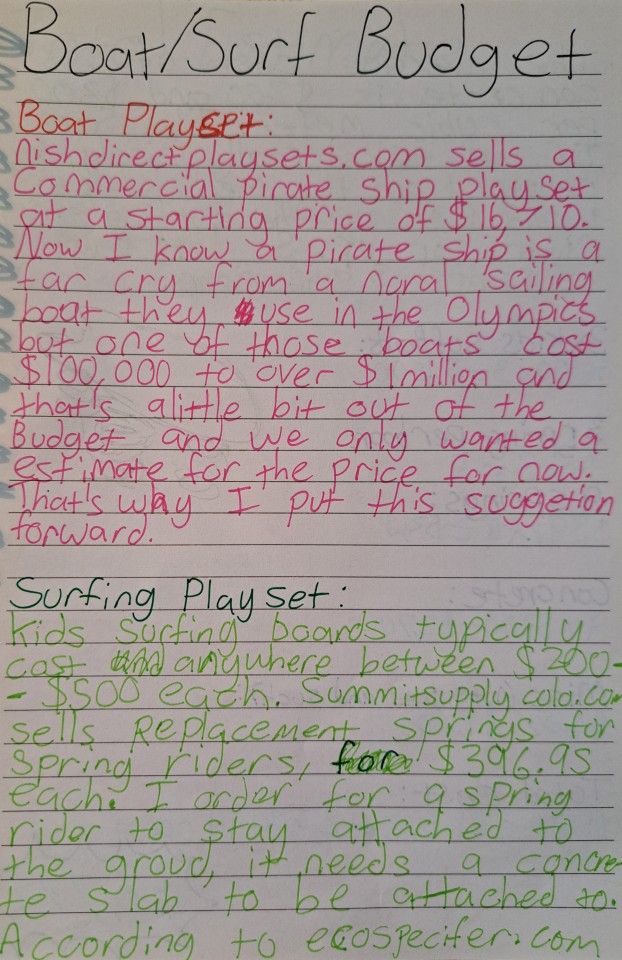 Boat/Surf Budget
Boat Playset:
nishdirectplaysets.com sells a
Commercial pirate ship playset
at a starting price of $16,710.
Now I know a pirate ship is a
far cry from a noral sailing
boat they use in the Olympics
but one of those boats cost
$100,000 to over $1million and
that's alittle bit out of the
Budget and we only wanted a
estimate for the price for now.
That's why I put this suggetion
forward.
Surfing Playset:
Kids surfing boards typically
cost anywhere between $200-
- $500 each. Summitsupply colo.co
sells Replacement springs for
spring riders, for $396.95
each. I order for a spring
rider to stay attached to
the groud, it needs a concre
te slab to be attached to.
According to ecospecifer.com